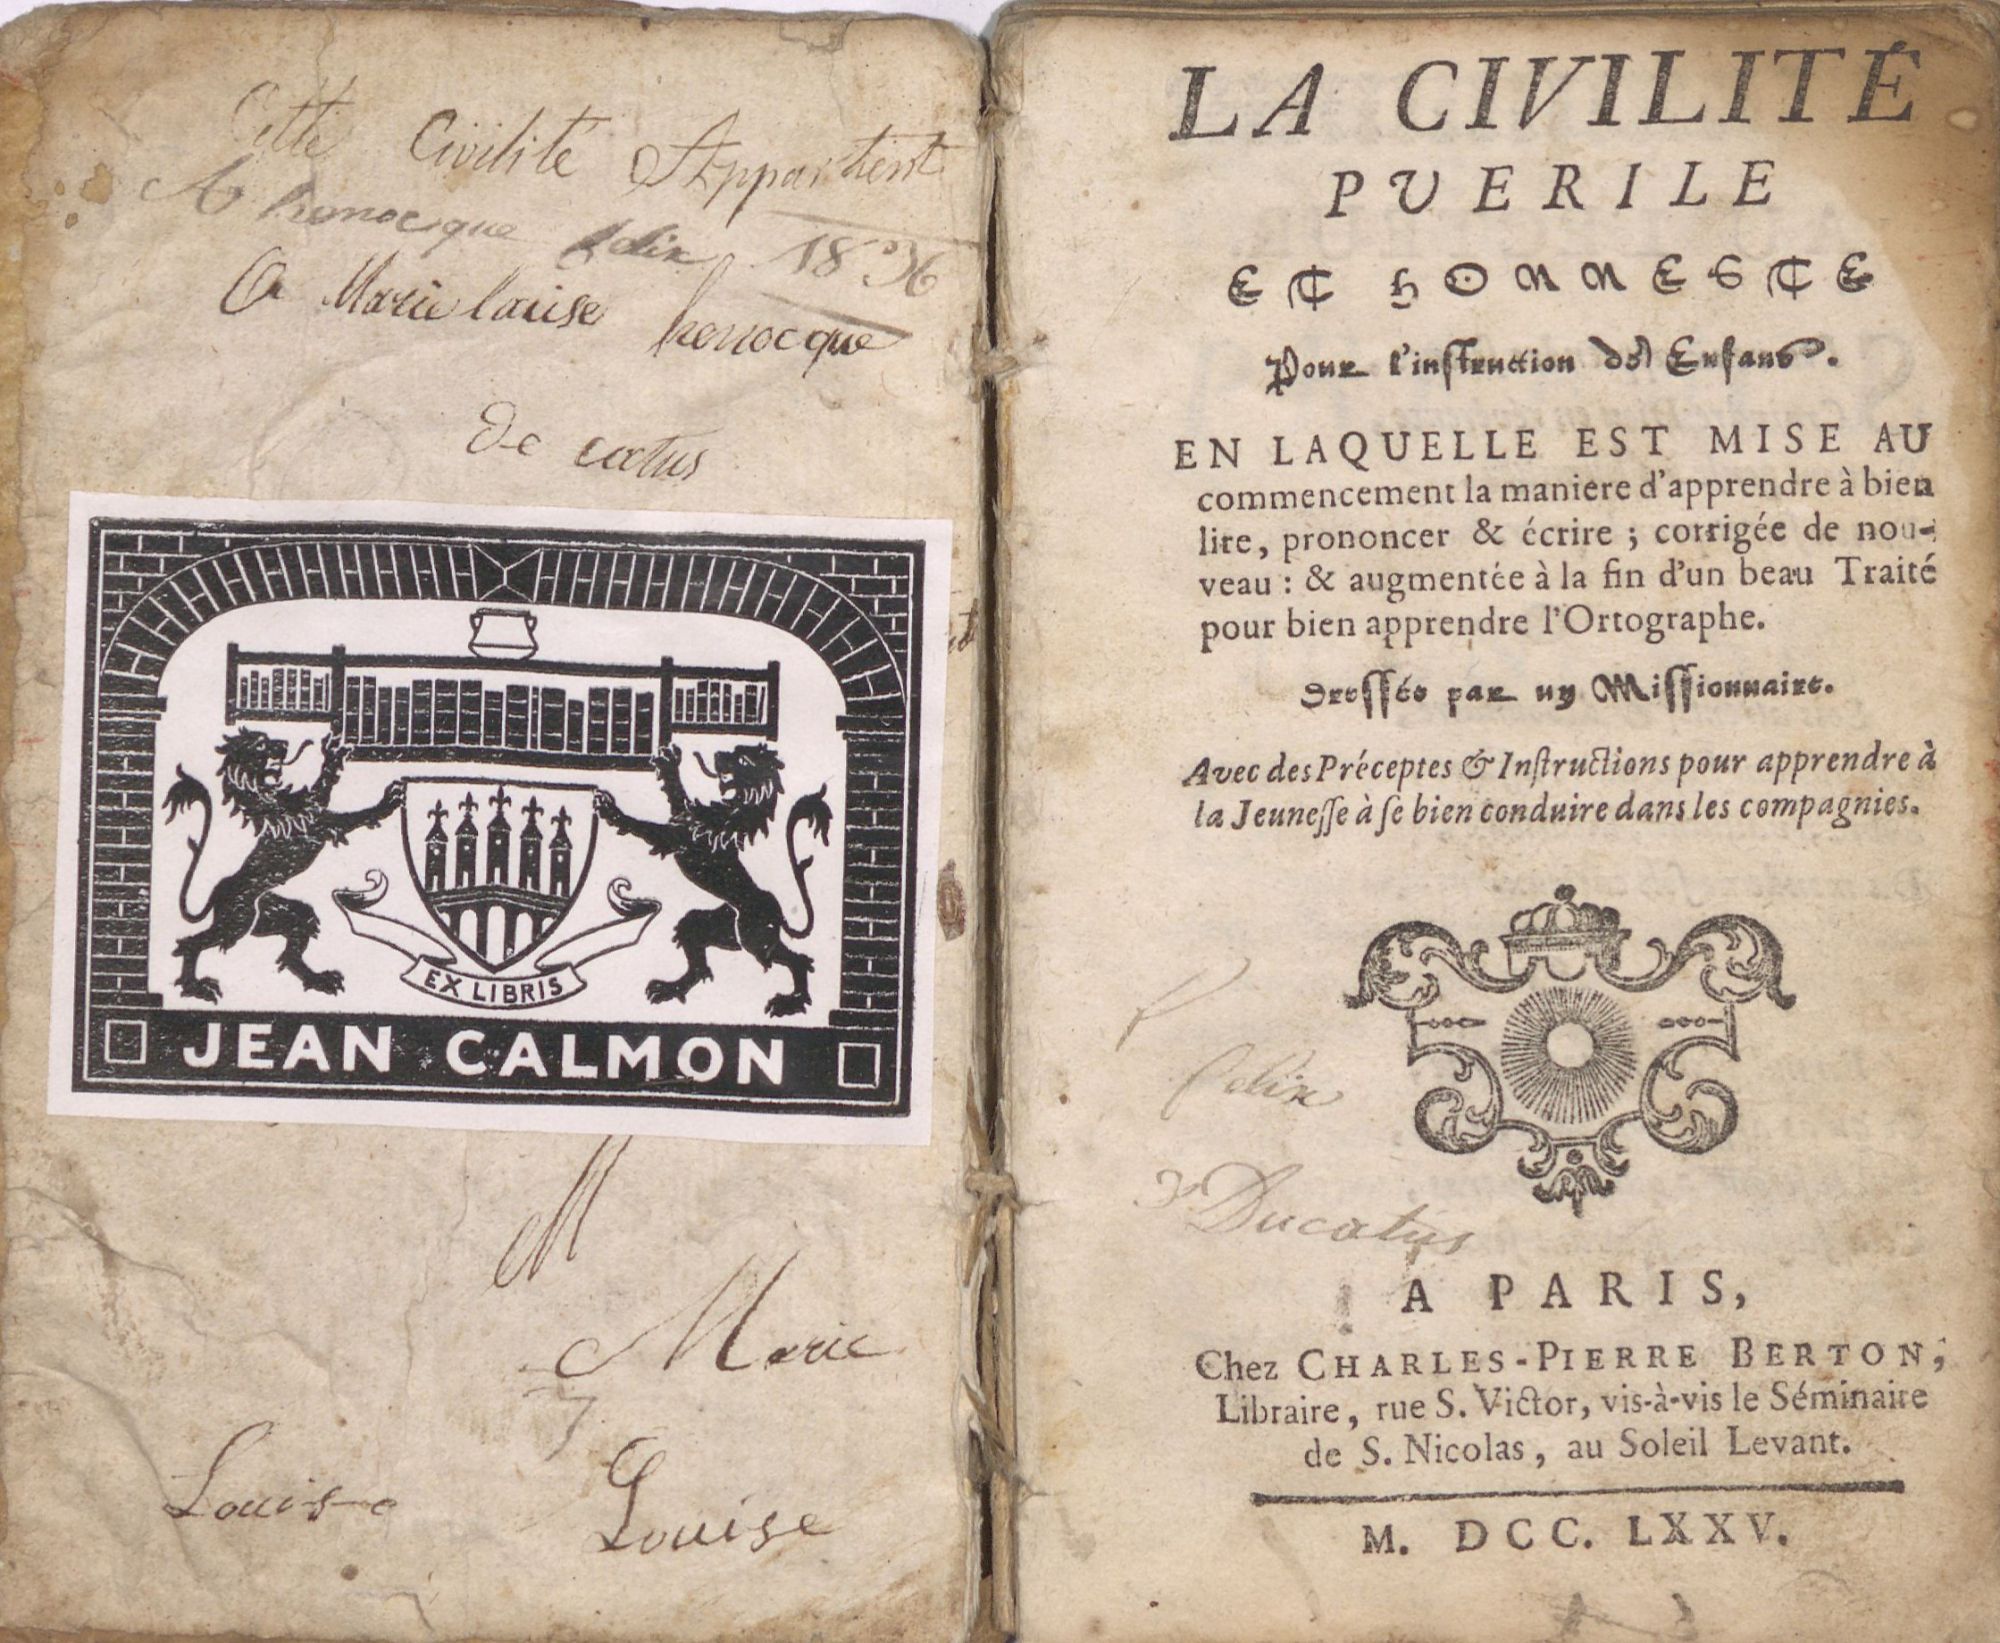 Cette Civilité Appartient
A henocque felix 1836
A Marie louise henocque
De catus
EX LIBRIS
JEAN CALMON
M
Marie
Louise Louise
LA CIVILITÉ
PUERILE
ET HONNESTE
Pour l'instruction des Enfans.
EN LAQUELLE EST MISE AU
commencement la maniere d'apprendre à bien
lire, prononcer & écrire ; corrigée de nou-
veau : & augmentée à la fin d'un beau Traité
pour bien apprendre l'Ortographe.
Dressée par un Missionnaire.
Avec des Préceptes & Instructions pour apprendre à
la Jeunesse à se bien conduire dans les compagnies.
felix
Ducatus
A PARIS,
Chez CHARLES-PIERRE BERTON,
Libraire, rue S. Victor, vis-à-vis le Séminaire
de S. Nicolas, au Soleil Levant.
M. DCC. LXXV.